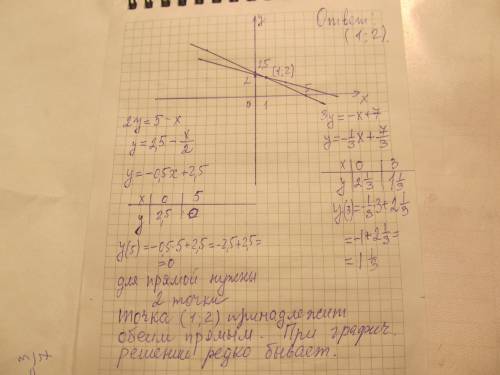 Ответ:
(1; 2).
y
2,5
(1; 2)
2
5
x
0
1
2y = 5 - x
y = 2,5 - x/2
y = -0,5x + 2,5
x | 0 | 5
y | 2,5 | 0
y(5) = -0,5·5 + 2,5 = -2,5 + 2,5 =
= 0
для прямой нужны
2 точки
3y = -x + 7
y = -1/3x + 7/3
x | 0 | 3
y | 2 1/3 | 1 1/3
y(3) = -1/3·3 + 2 1/3
= -1 + 2 1/3 =
= 1 1/3
точка (1; 2) принадлежит
обеим прямым. При графич.
решении редко бывает.